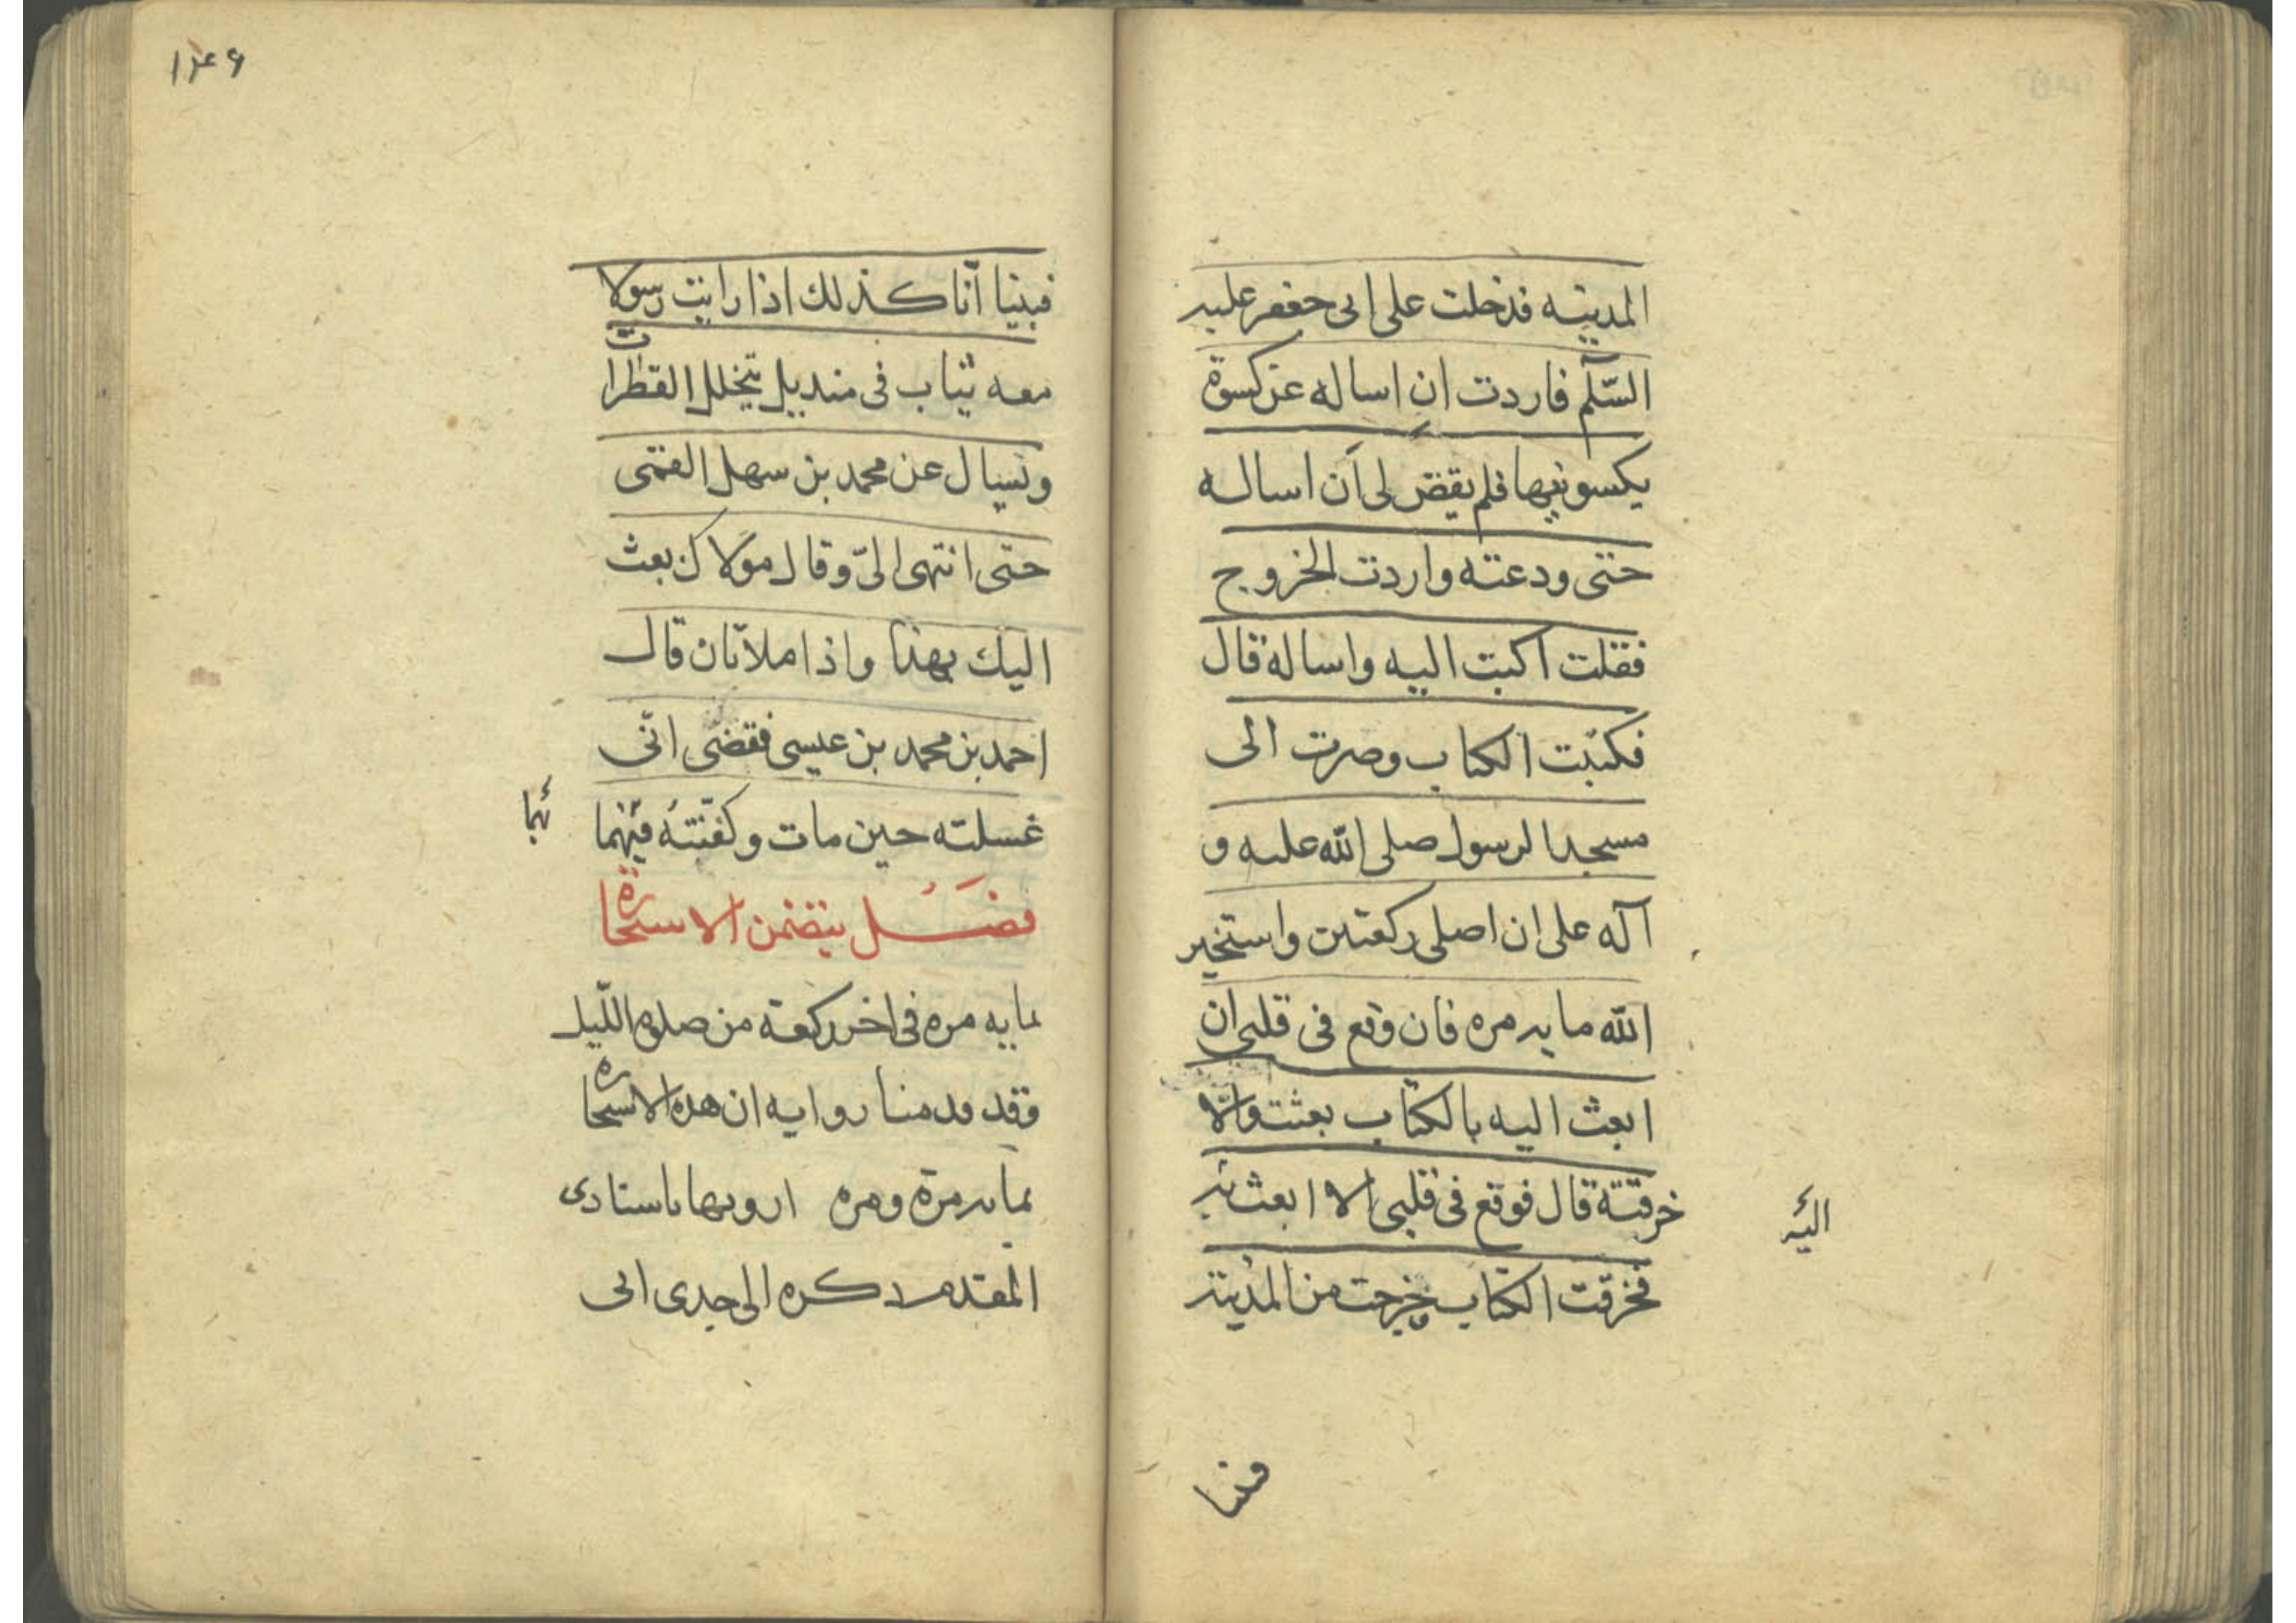 المدينه فدخلت على ابى جعفر عليه
السّلم فاردت ان اساله عن كسوة
يكسونيها فلم يقض لى ان اساله
حتى ودعته واردت الخروج
فقلت اكتب اليه واساله قال
فكتبت الكتاب وصرت الى
مسجد الرسول صلى الله عليه و
آله على ان اصلى ركعتين واستخير
الله مايه مره فان وقع فى قلبى ان
ابعث اليه بالكتاب بعثت والّا
خرقته قال فوقع فى قلبى الا ابعث
اليه
فخرقت الكتاب وخرجت من المدينة
فبينا
۱۴۶
فبينا انا كذلك اذا رايت رسولا
معه ثياب فى منديل يتخلل القطرات
ويسال عن محمد بن سهل القمى
حتى انتهى الىّ وقال مولاك بعث
اليك بهذا واذا ملاتان قال
احمد بن محمد بن عيسى فقضى انّى
غسلته حين مات وكفنته فيهما
ئهما
فصل يتضمن الاستخارة
بمايه مره فى اخر ركعة من صلوه اللّيل
وقد قدمنا روايه ان هذه الاستخاره
بمايه مرة ومره ارويها باسنادى
المقدم ذكره الى جدى ابى